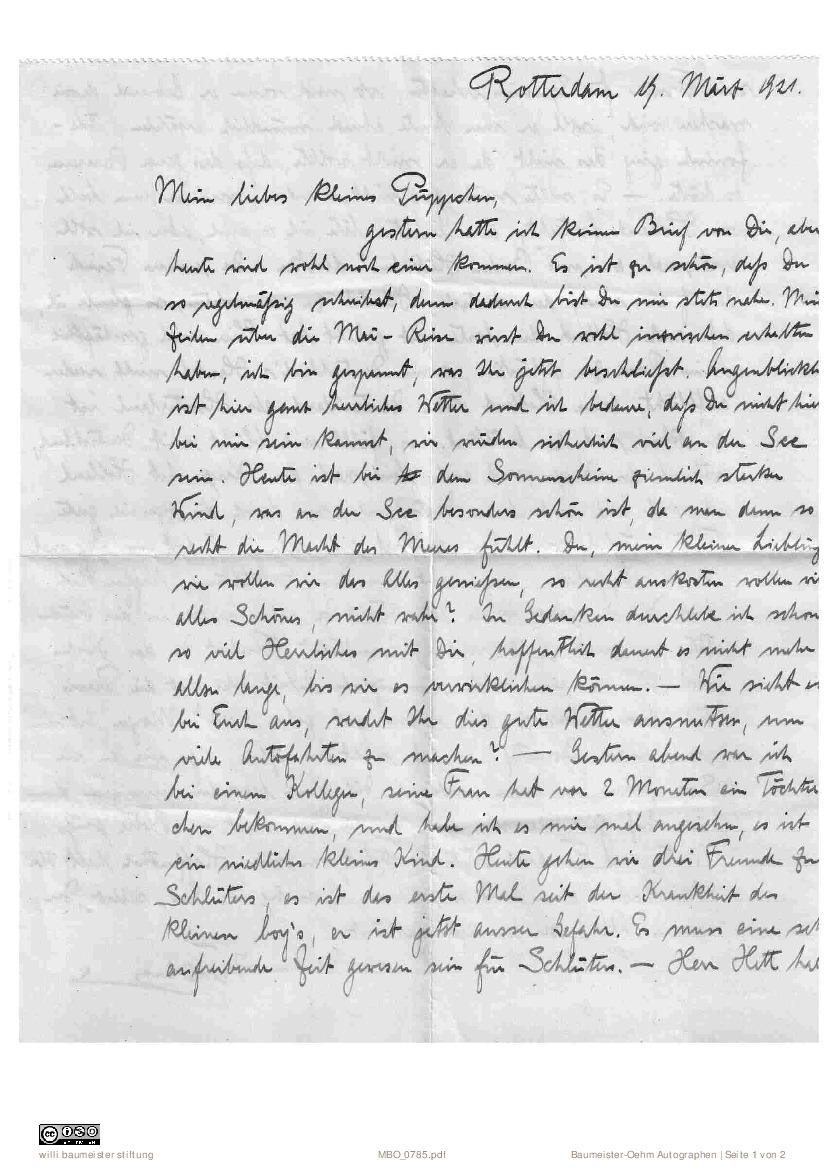 Rotterdam 19. März 1921.
Mein liebes kleines Püppchen,
gestern hatte ich keinen Brief von Dir, aber
heute wird wohl noch einer kommen. Es ist zu schön, daß Du
so regelmäßig schreibst, denn dadurch bist Du mir stets nahe. Mei
Zeilen über die Mai-Reise wirst Du wohl inzwischen erhalten
haben, ich bin gespannt, was Ihr jetzt beschließt. Augenblickl
ist hier ganz herrliches Wetter und ich bedaure, daß Du nicht hier
bei mir sein kannst, wir würden sicherlich viel an der See
sein. Heute ist bei dem Sonnenscheine ziemlich starker
Wind, was an der See besonders schön ist, da man dann so
recht die Macht des Meeres fühlt. Du, mein kleiner Liebling
wie wollen wir das Alles genießen, so recht auskosten wollen wir
alles Schöne, nicht wahr? In Gedanken durchlebe ich schon
so viel Herrliches mit Dir, hoffentlich dauert es nicht mehr
allzu lange, bis wir es verwirklichen können. — Wie sieht es
bei Euch aus, werdet Ihr dies gute Wetter ausnutzen, um
viele Autofahrten zu machen? — Gestern abend war ich
bei einem Kollegen, seine Frau hat vor 2 Monaten ein Töchter
chen bekommen, und habe ich es mir mal angesehen, es ist
ein niedliches kleines Kind. Heute gehen wir drei Freunde zu
Schlüters, es ist das erste Mal seit der Krankheit des
kleinen boy's, er ist jetzt ausser Gefahr. Es muss eine seh
aufreibende Zeit gewesen sein für Schlüters. — Herr Hett ha
willi baumeister stiftung
MBO_0785.pdf
Baumeister-Oehm Autographen | Seite 1 von 2